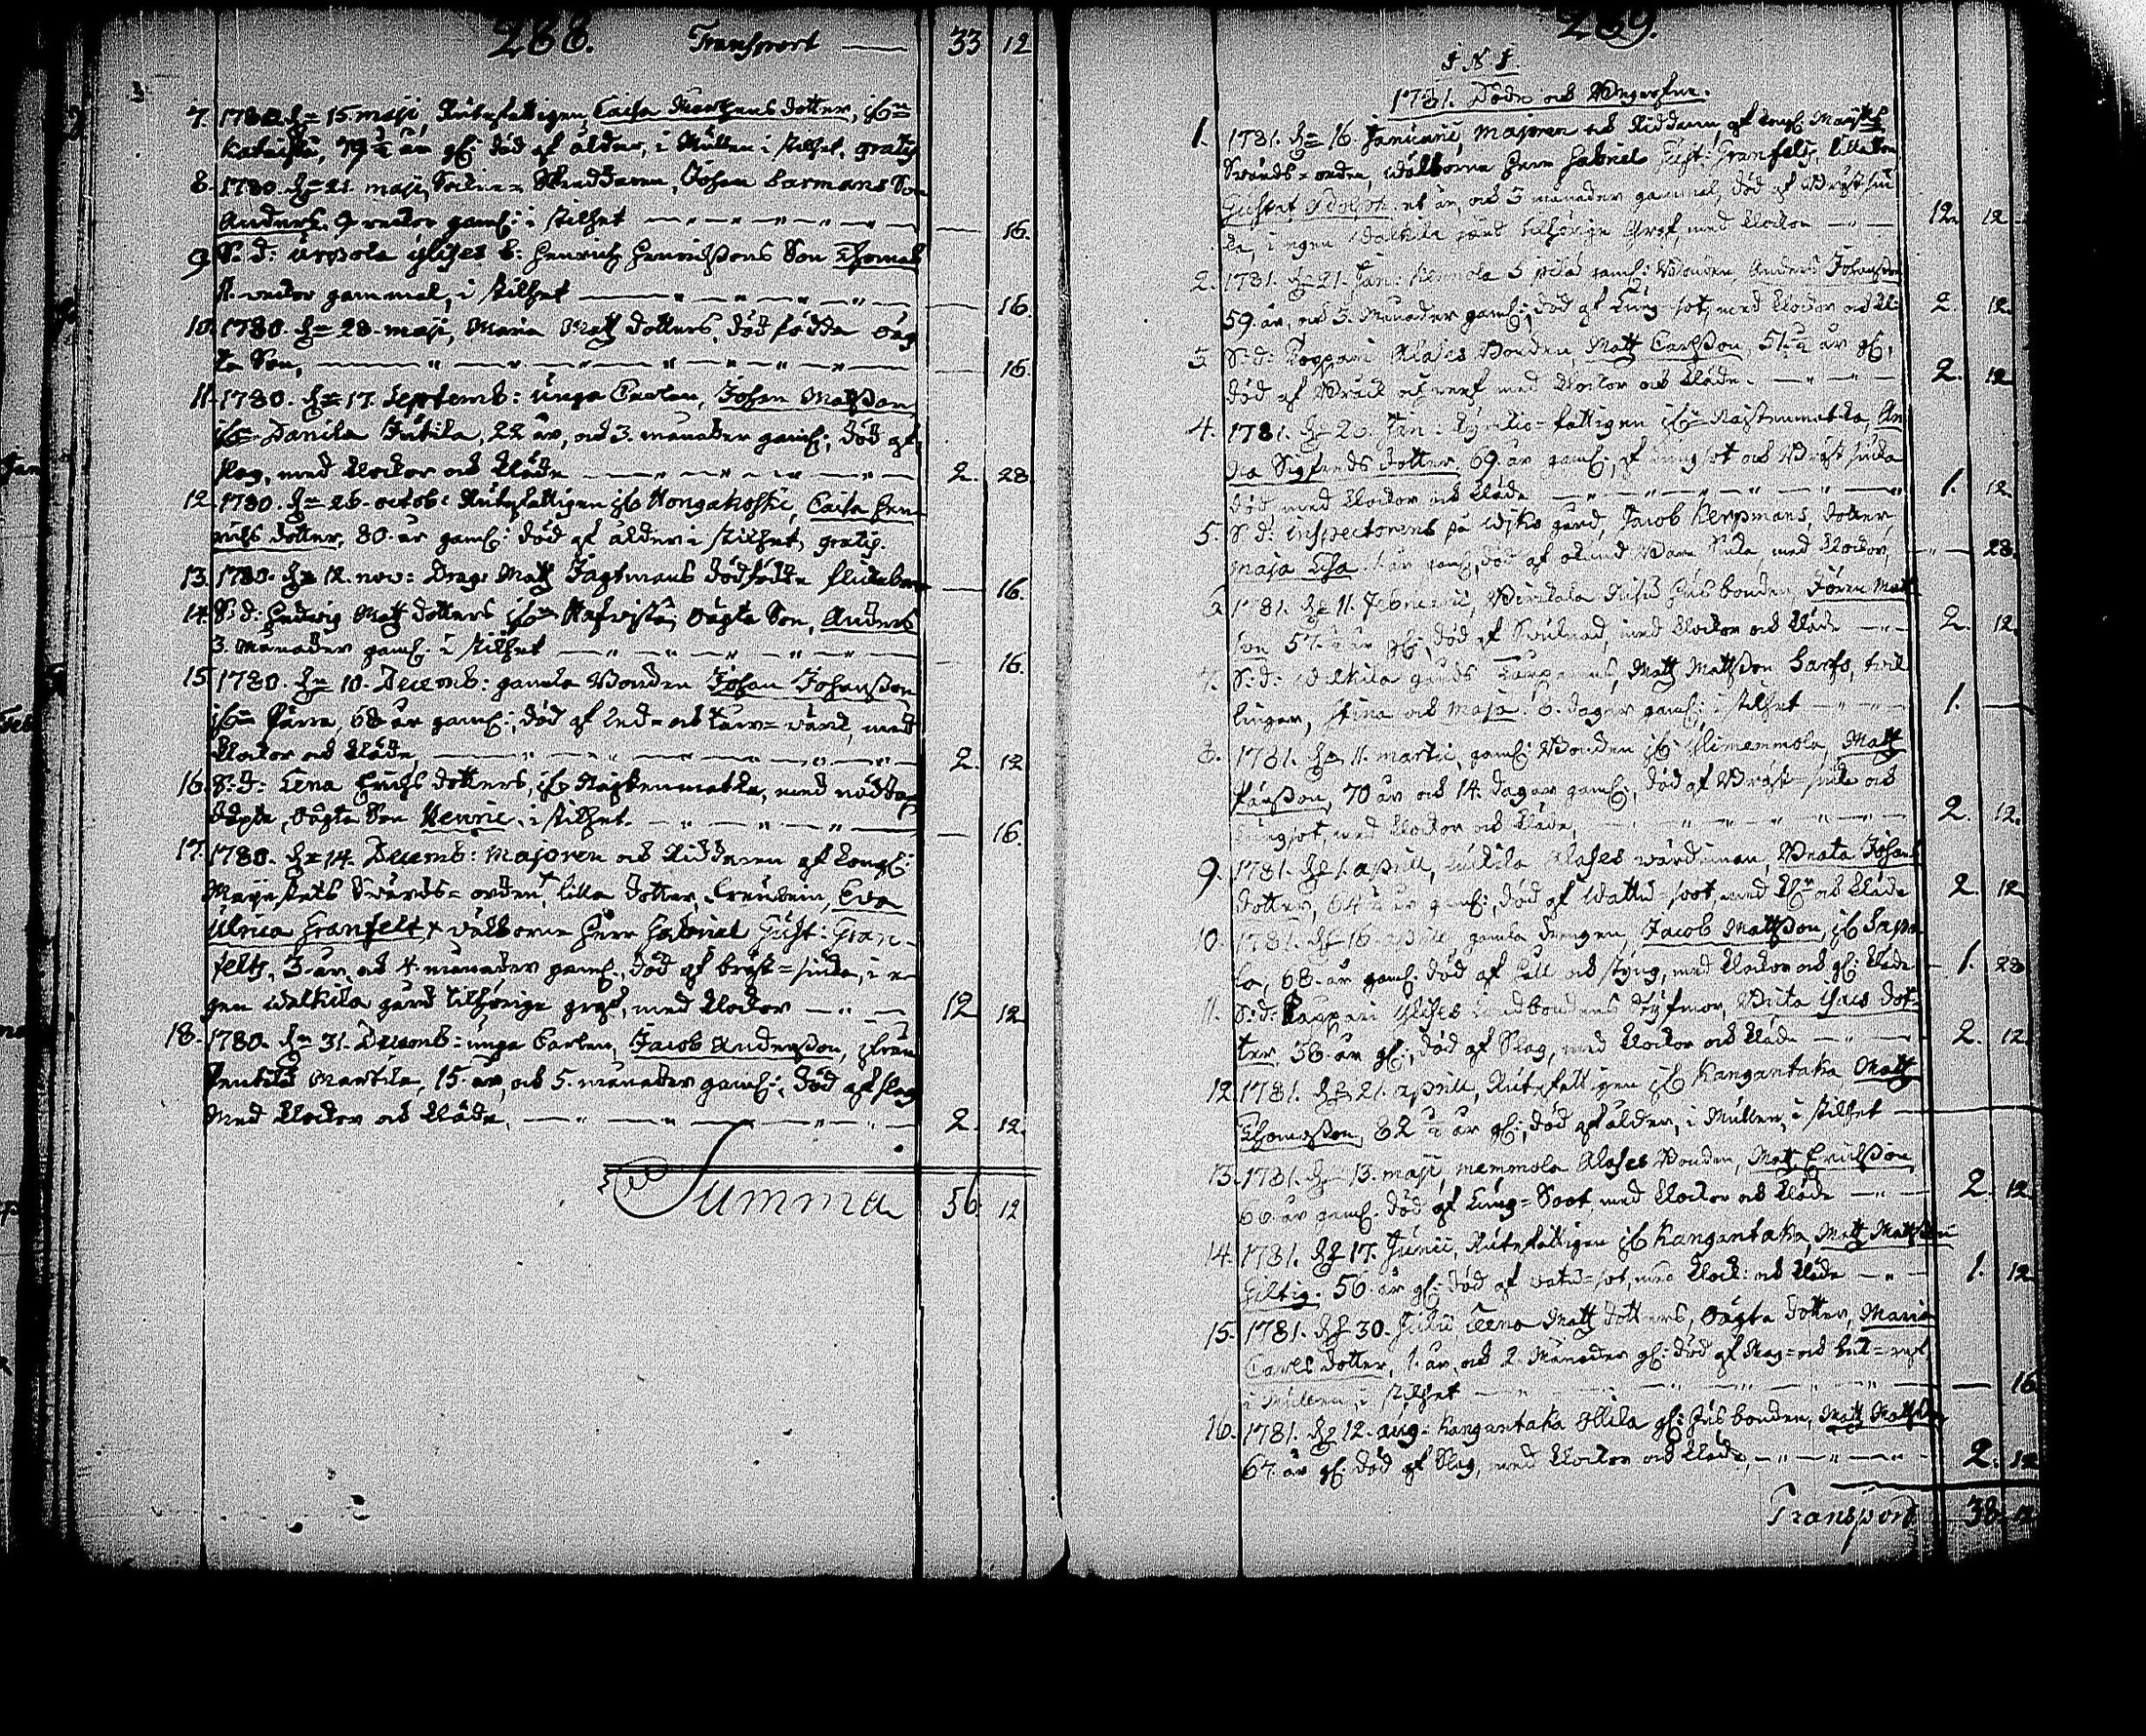 288. Transport — 33 12
7. 1780 d. 15 maji, Rutefattigen, Caisa Martens dotter, ifrån
Katvista, 79 1/2 år gl: död af ålder, i Mullen i stilhet, gratis
8. 1780. d. 21. maji, Sockne- Skreddaren, Johan Barmans Son
Anders. 9 veckor gaml: i stilhet — 16.
9 S. d: Urpola Ylises b: Henrich Henrichssons Son Thomas
veckor gammal, i stilhet — 16
10. 1780. d. 28. maji, Maria Matts dotters, död födda oäg
ta Son, — 16
11. 1780. d. 17. Septemb: unga Carlen, Johan Matsson
ifrån Danila Jutila, 22 år, och 3. månader gaml; död af
slag, med klockor och kläde — 2. 28
12. 1780. d. 26. octob: Rutefattigen if. Hongakoski, Caisa Hen
richs dotter, 80. år gaml: död af ålder i stilhet, gratis.
13. 1780. d. 12. nov: Drag: Matts Jagtmans dödfödde flickebarn — 16.
14. S: d: Hedvig Matts dotters ifrån oägta Son, Anders
3. månader gaml. i stilhet — 16.
15 1780. d. 10. Decemb: gamla Bonden Johan Johansson
ifrån Parra, 68 år gaml:, död af led- och värck, med
klockor och kläde, — 2. 12
16. S: d: Lena Erichs dotters, if. Raistenmatka, med nöddop
döpte, oägta Son Henric, i stilhet. — 16.
17. 1780. d. 14. Decemb: Majoren och Riddaren af Kongl:
Maije stäts Svärds- orden, lilla dotter, Freuchein, Eva
Ulrica Granfelt, x välborne Herr Gabriel Gust: Gran-
felts, 3. år, och 4. månader gaml., död af bröst- siuka, i e-
gen Walkila gård tilhörige graf, med klockor — 12 12
18. 1780. d. 31. Decemb: unga Carlen, Jacob Andersson, ifrån
Pentilä Martila, 15. år, och 5. månader gaml:, död af slag
med klockor och kläde, — 2. 12.
Summa 56 12
289.
I N I.
1781. Döde och Begrafne.
1. 1781. d. 16. Januarii, Majoren och Riddaren, af Kongl. Maijsts
Svärds- orden, wälborne Herr Gabriel Gust: Granfelts, lilla Son
Gustaf Adolph. et år, och 3 månader gammal, död af Bröst siu
ka, i egen Walkila gård tilhörige Graf, med klockor — 12. 12
2. 1781. d. 21. Jan. Kemmola gaml: Bonden, Anders Johansson
59. år, och 3. månader gaml:, död af Lung-sot, med klockor och klä: 2. 12.
3 S: d: Koppari Klases Bonden, Matts Carlsson, 51. 1/2 år gl:,
död af Bråck och med klockor och kläde. — 2. 12
4. 1781. d. 26. Jan. Kyrckio- fattigen ifrån Raistenmatka, An
na Sigfreds dotter, 69. år gaml:, af lungsot och Bröst siucka
död med klockor och kläde — 1. 12.
5. S: d: inspectorens på Wiks gård, Jacob Kerpmans, dotter,
Maja Lisa. 1. år gaml, död af okänd Barn siuka, med klockor, — 28.
6 1781. d. 11. Februarii, Husbonden, Jören Mats
son 57. 1/2 år gl:, död af Svulnad, med klockor och kläde — 2. 12.
7. S: d: Walkila gårds Matts Mattsson Harfs, tvil
lingar, Stina och Maja. 6. dagar gaml: i stilhet — 1.
8. 1781. d. 11. martii, gaml: Bonden if. Ylimemmola, Matts
Pärsson, 70 år och 14. dagar gaml:, död af Bröst- siuka och
Lungsot, med klockor och kläde, — 2. 12.
9. 1781. d. 1. aprill, Klases wärdinnan, Beata Johans
dotter, 64 1/2 år gaml:, död af Wattu- soot, med kl. och kläde 2. 12
10. 1781. d. 16. aprill, gamla drengen, Jacob Mattsson, if.
la, 68. år gaml. död af håll och styng, med klockor och gl: kläde 1. 28
11. S: d: Kaupari Ylises Landbondens Beata Ises dot-
ter 56. år gl:, död af Slag, med klockor och kläde — 2. 12
12. 1781. d. 21. aprill, Rutefattigen if. Kangantaka Matts
Thomasson, 82 1/2 år gl:, död af ålder, i Mullen, i stilhet —
13. 1781. d. 13. maji, Memmola Klases Bonden, Matts Erichsson
66. år gaml. död af Lung- Soot, med klockor och kläde — 2. 12
14. 1781. d. 17. Junii, Rutefattigen if. Kangantaka, Matts Mattsson
Giltig. 56. år gl: död af watu- sot, med klock: och kläde — 1. 12
15. 1781. d. 30. Julii Lena Matts dotters, oägta dotter, Maria
Carls dotter, 1. år, och 2. Månader gl: död af Mag- och
i Mullen, i stilhet — 16
16. 1781. d. 12. aug. Kangantaka Ollila gl: Husbonden, Matts Mattsson
67. år gl: död af Slag, med klockor och kläde, — 2. 12
Transport 38. 12